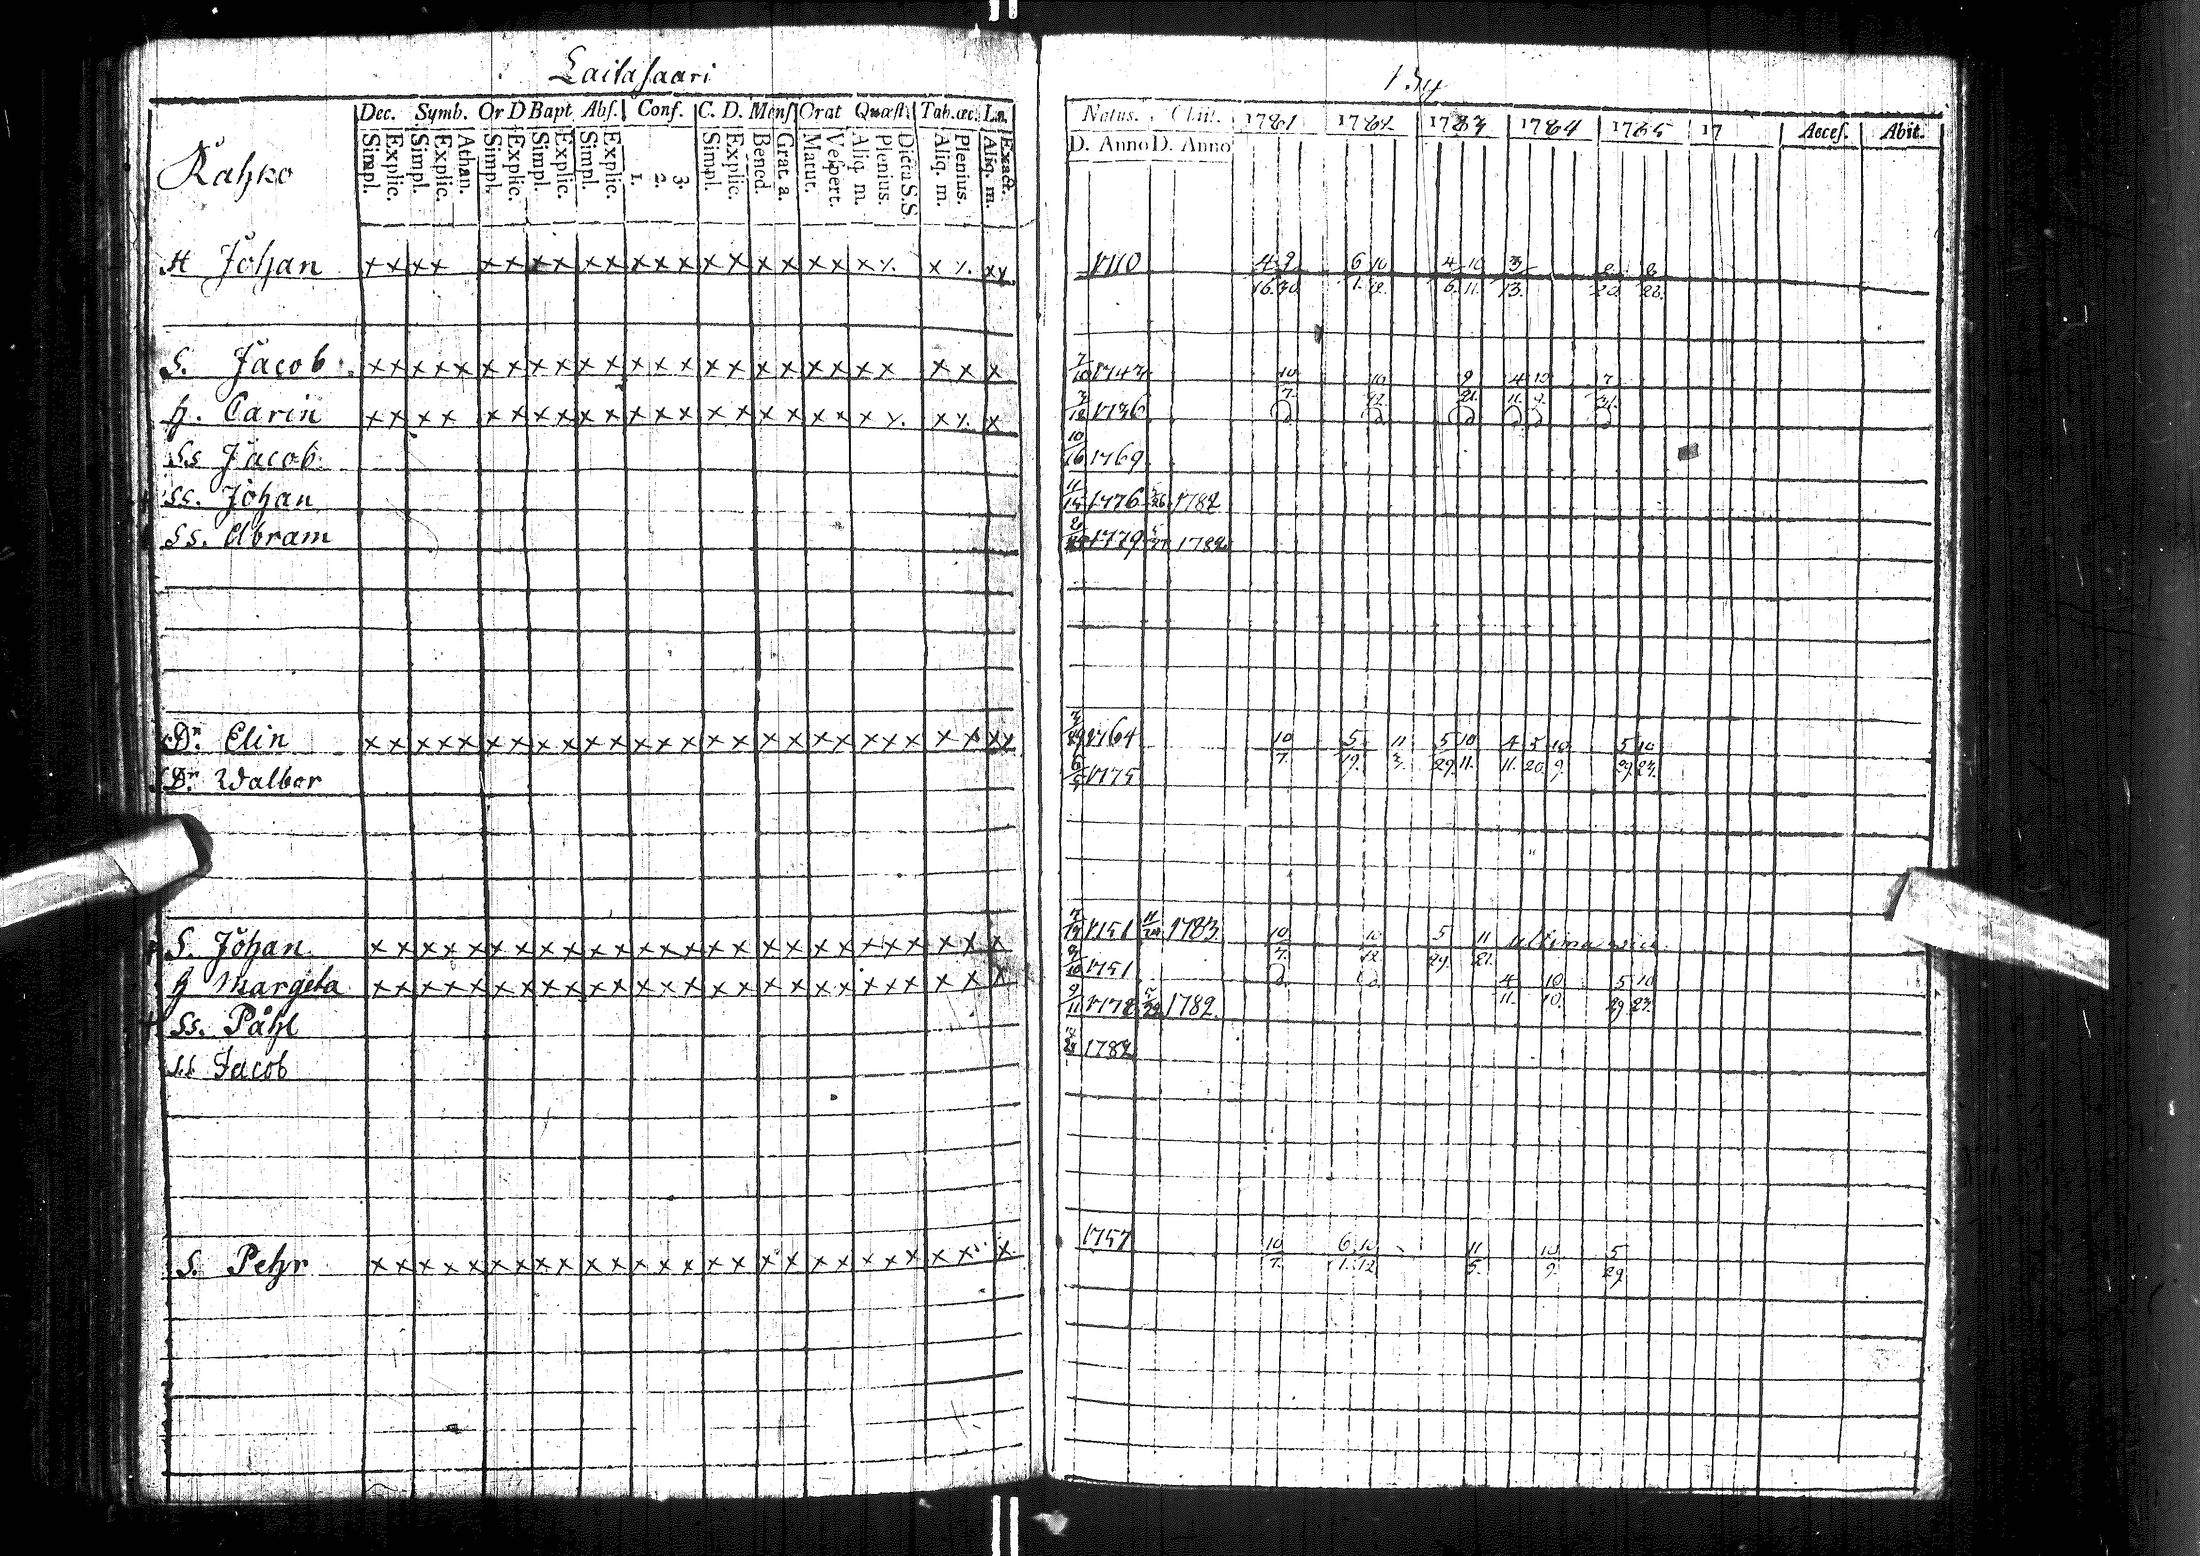 Laitasaari
Dec. Symb. Or D Bapt Abs. Conf. C. D. Mens Orat Quæst. Tab.œc. L.n.
Simpl. Explic. Simpl. Explic. Athan. Simpl. Explic. Simpl. Explic. Simpl. Explic. 1. 2. 3. Simpl. Explic. Bened. Grat. a. Matut. Vespert. Aliq. m. Plenius. Dicta S.S. Aliq. m. Plenius. Aliq. m. Exact.
Kahko
H Johan x x x x x x x x x x x x x x x x x x x x x x x x x
S. Jacob x x x x x x x x x x x x x x x x x x x x x x x x x
h. Carin x x x x x x x x x x x x x x x x x x x x x x x x
Ss Jacob
ss. Johan
Ss. Abram
Dr. Elin x x x x x x x x x x x x x x x x x x x x x x x x x x x
Dr. Walbor
S. Johan x x x x x x x x x x x x x x x x x x x x x x x x x x
h Margeta x x x x x x x x x x x x x x x x x x x x x x x x x x
ss. Påhl
ss Jacob
S. Pehr x x x x x x x x x x x x x x x x x x x x x x x x x x
134
Natus. Obiit. 1781 1782 1783 1784 1785 17 Acces. Abit.
D. Anno D. Anno
1710 4/16 9/30 6/1. 10/12. 4/6 10/11. 3/13.
1743 10/7. 10/12. 9/21. 4/11. 10/9. 7/31.
1736
10/16 1769
11/15 1776 1782
1779 1782
1764 10/7. 5/19. 11/3. 5/29. 10/11. 4/11. 5/20. 10/9. 5/29. 10/23.
6/5 1775
1751 11/20 1783 10/7. 10/12. 5/29. 11/21. ultima vice
9/10 1751 4/11. 10/10. 5/29 10/23.
9/11 1778 1782.
1782
1757 10/7. 6/1. 10/12 11/5. 10/9. 5/29